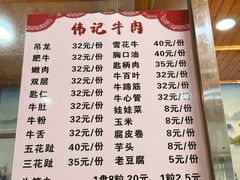 伟记牛肉
吊龙 32元/份 雪花牛 40元/份
肥牛 32元/份 胸口油 40元/份
嫩肉 32元/份 匙柄肉 35元/份
双层 32元/份 牛百叶 32元/份
匙仁 32元/份 牛蹄筋 32元/份
牛肚 32元/份 牛心管 32元/份
牛粉 32元/份 娃娃菜 8元/份
牛舌 32元/份 玉米 8元/份
五花趾 40元/份 腐皮卷 8元/份
三花趾 35元/份 芋头 8元/份
老豆腐 5元/份
1盘8粒 20元 1粒2.5元